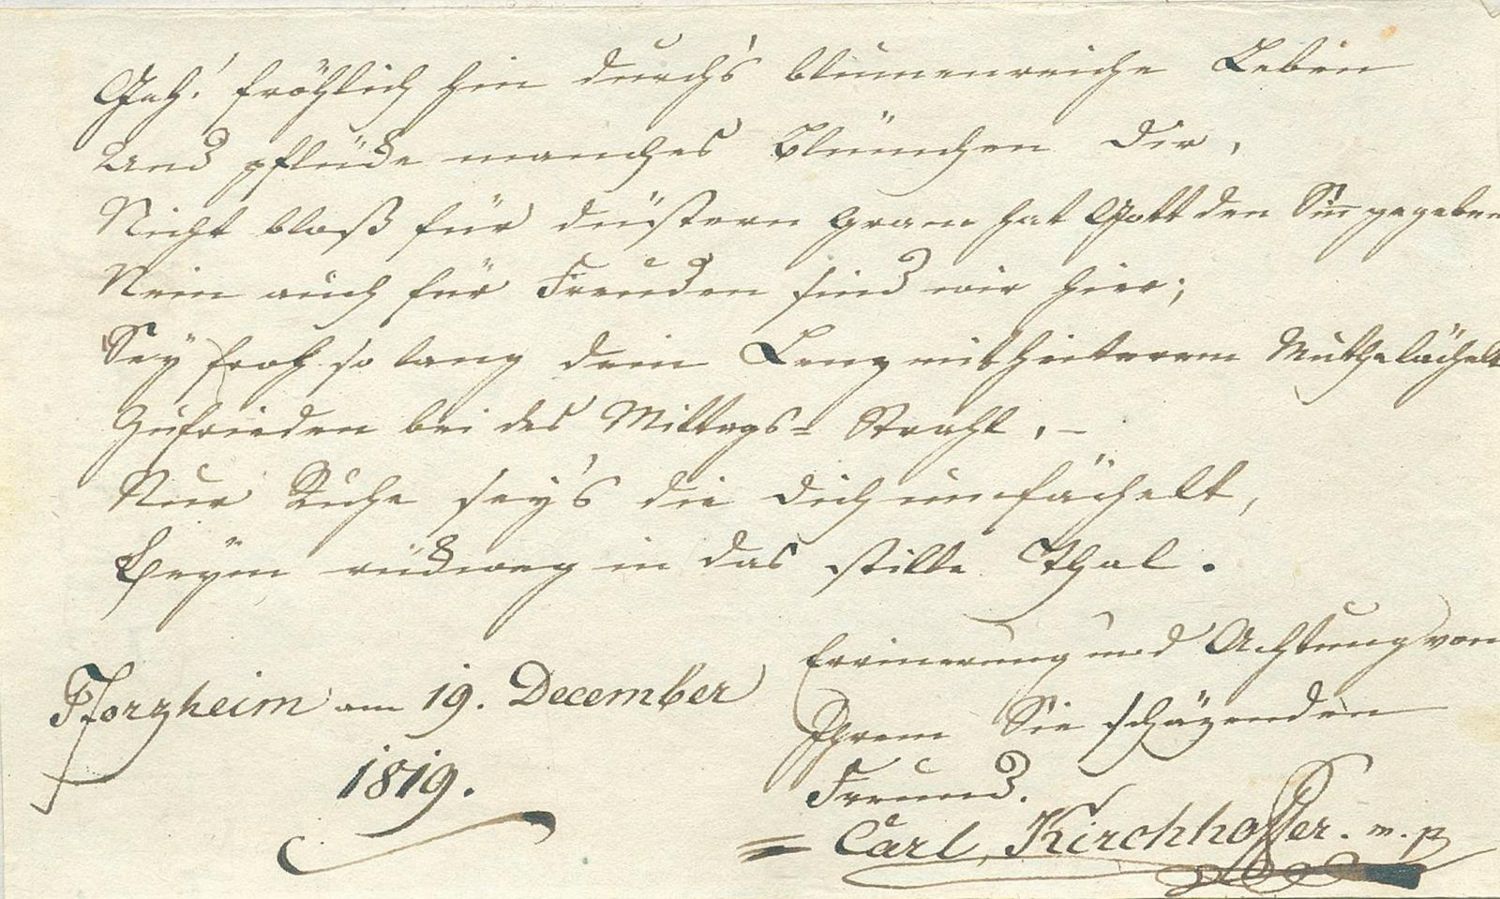 Geh! fröhlich hin durch's blumenreiche Leben
Und pflücke manches Blümchen Dir,
Nicht bloß für düstern Gram hat Gott den Sin̄ gegeben
Nein auch für Freuden sind wir hier;
Sey froh so lang dein Lenz mit heiterem Muthe lächelt
Zufrieden bei des Mittags- Strahl. –
Nur Ruhe sey's die dich umfächelt,
rückweg in das stille Thal.
Pforzheim am 19. December
1819.
Erinnerung und Achtung von
Ihrem Sie schäzenden
Freund.
Carl Kirchhoffer. m. p